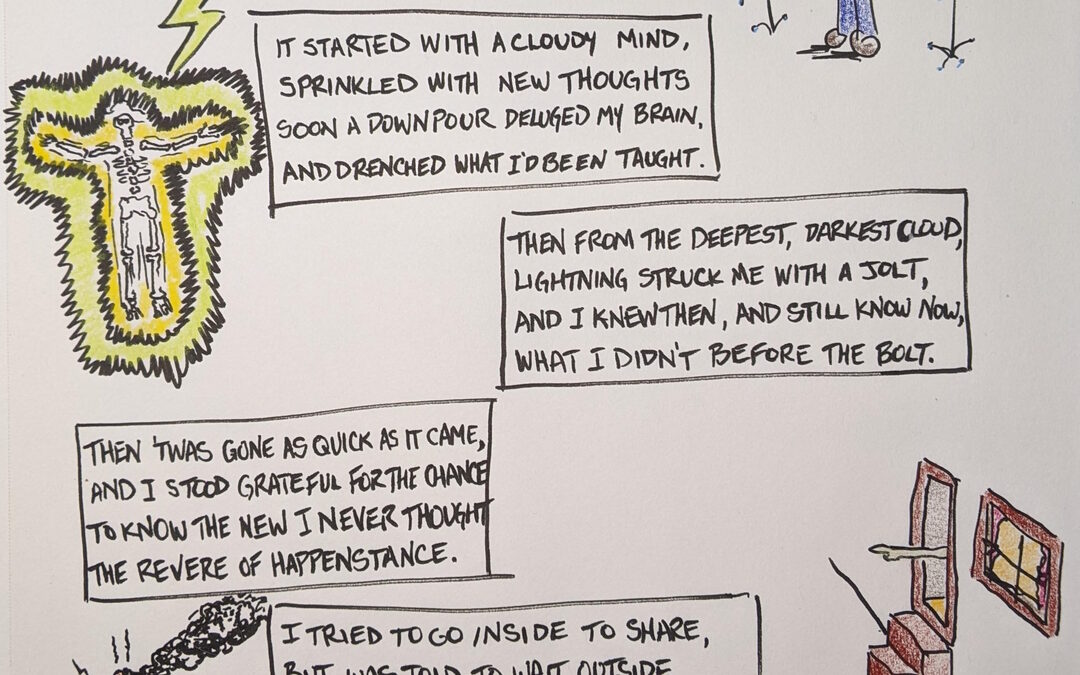 IT STARTED WITH A CLOUDY MIND,
SPRINKLED WITH NEW THOUGHTS
SOON A DOWNPOUR DELUGED MY BRAIN,
AND DRENCHED WHAT I'D BEEN TAUGHT.
THEN FROM THE DEEPEST, DARKEST CLOUD,
LIGHTNING STRUCK ME WITH A JOLT,
AND I KNEW THEN, AND STILL KNOW NOW,
WHAT I DIDN'T BEFORE THE BOLT.
THEN 'TWAS GONE AS QUICK AS IT CAME,
AND I STOOD GRATEFUL FOR THE CHANCE
TO KNOW THE NEW I NEVER THOUGHT
THE REVERE OF HAPPENSTANCE.
I TRIED TO GO INSIDE TO SHARE,
BUT WAS TOLD TO WAIT OUTSIDE